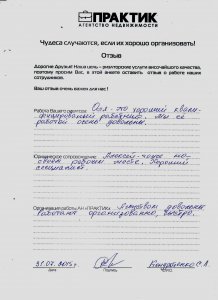 ПРАКТИК
АГЕНТСТВО НЕДВИЖИМОСТИ
Чудеса случаются, если их хорошо организовать!
Отзыв
Дорогие Друзья! Наша цель - риэлторские услуги высочайшего качества,
поэтому просим Вас, в этой анкете оставить отзыв о работе наших
сотрудников.
Ваш отзыв очень важен для нас!
Работа Вашего агента:
хороший квали-
фицированный работник. Мы её
работой очень довольны.
Юридическое сопровождение
Алексей тоже на
своём рабочем месте. Хороший
специалист.
Организация работы АН «ПРАКТИК»
довольны.
Работают организованно, быстро.
31.07.2015г
Дата
Подпись